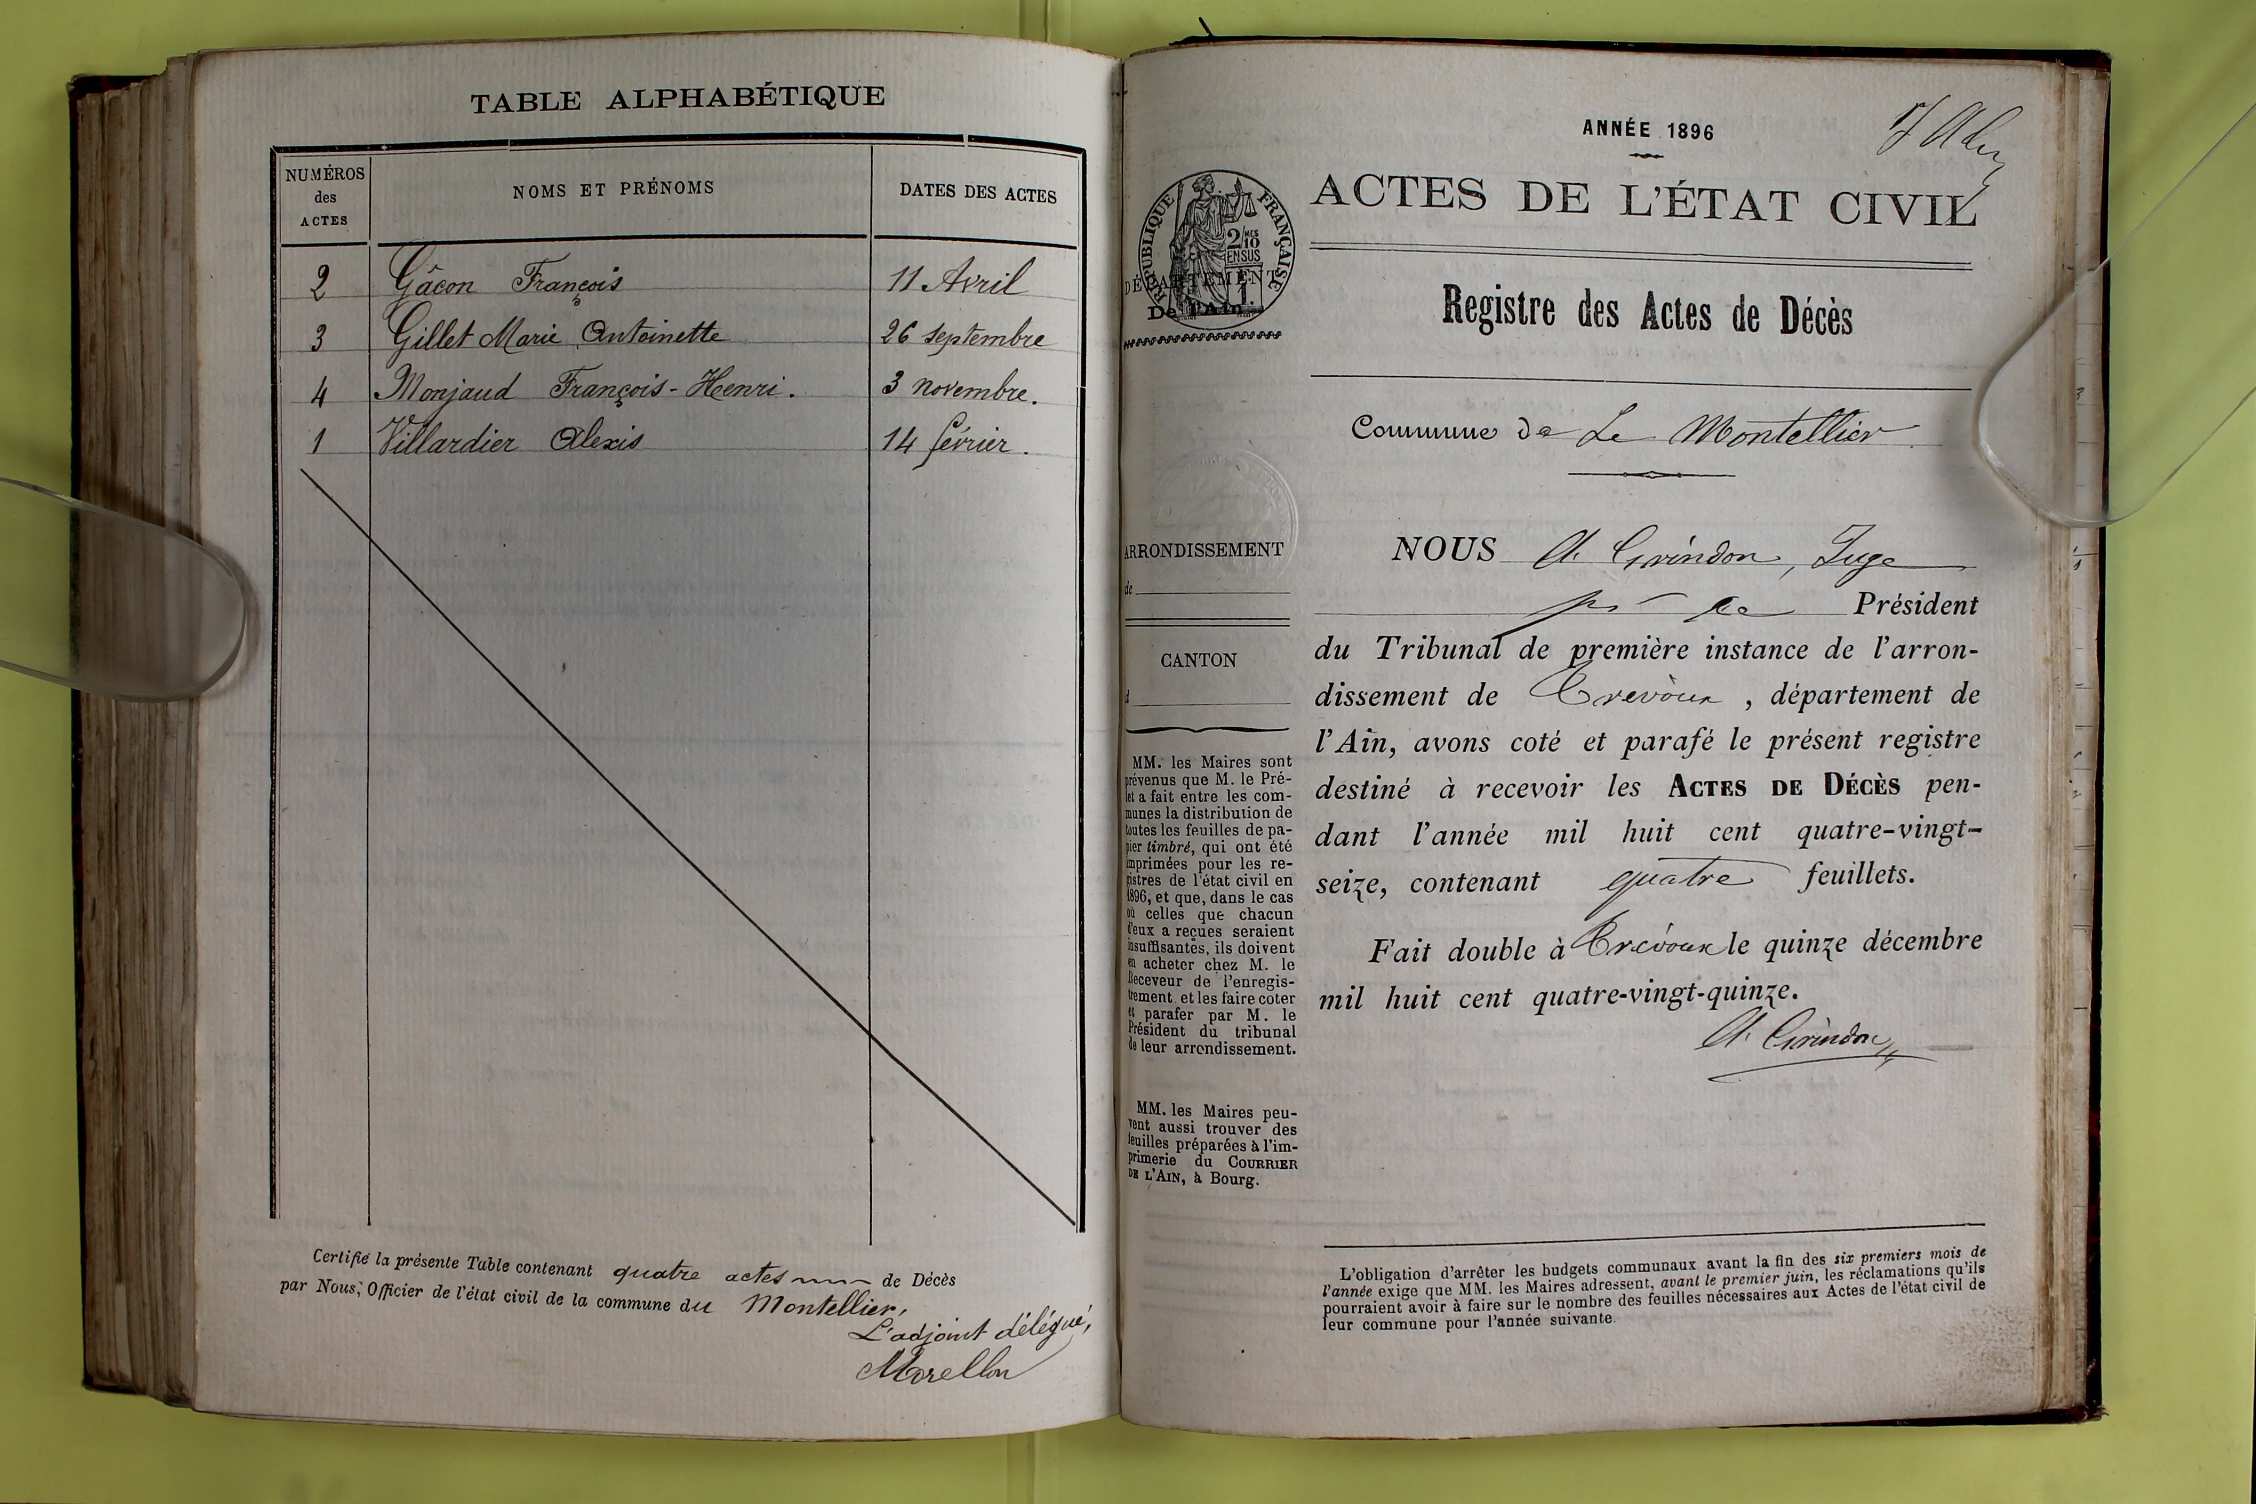 TABLE ALPHABÉTIQUE
NUMÉROS des ACTES NOMS ET PRÉNOMS DATES DES ACTES
2 Gâcon François 11 Avril
3 Gillet Marie Antoinette 26 septembre
4 Monjaud François-Henri. 3 novembre.
1 Villardier Alexis 14 février.
Certifié la présente Table contenant quatre actes de Décès
par Nous, Officier de l'état civil de la commune du Montellier,
L'adjoint délégué,
Morellon
ANNÉE 1896
ACTES DE L'ÉTAT CIVIL
RÉPUBLIQUE FRANÇAISE
2/10 MES
EN SUS
DÉPARTEMENT
De l'Ain
Registre des Actes de Décès
Commune de Le Montellier
ARRONDISSEMENT
de
CANTON
d
MM. les Maires sont
prévenus que M. le Pré-
fet a fait entre les com-
munes la distribution de
toutes les feuilles de pa-
pier timbré, qui ont été
imprimées pour les re-
gistres de l'état civil en
1896, et que, dans le cas
où celles que chacun
d'eux a reçues seraient
insuffisantes, ils doivent
en acheter chez M. le
Receveur de l'enregis-
trement et les faire coter
et parafer par M. le
Président du tribunal
de leur arrondissement.
MM. les Maires peu-
vent aussi trouver des
feuilles préparées à l'im-
primerie du COURRIER
DE L'AIN, à Bourg.
NOUS A. Girindon, Juge
Président
du Tribunal de première instance de l'arron-
dissement de Trévoux, département de
l'Ain, avons coté et parafé le présent registre
destiné à recevoir les ACTES DE DÉCÈS pen-
dant l'année mil huit cent quatre-vingt-
seize, contenant quatre feuillets.
Fait double à Trévoux le quinze décembre
mil huit cent quatre-vingt-quinze.
A. Girindon
L'obligation d'arrêter les budgets communaux avant la fin des six premiers mois de
l'année exige que MM. les Maires adressent, avant le premier juin, les réclamations qu'ils
pourraient avoir à faire sur le nombre des feuilles nécessaires aux Actes de l'état civil de
leur commune pour l'année suivante.